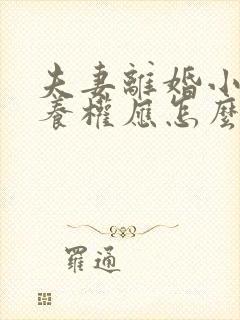 夫妻離婚小
養權應怎麼
羅通